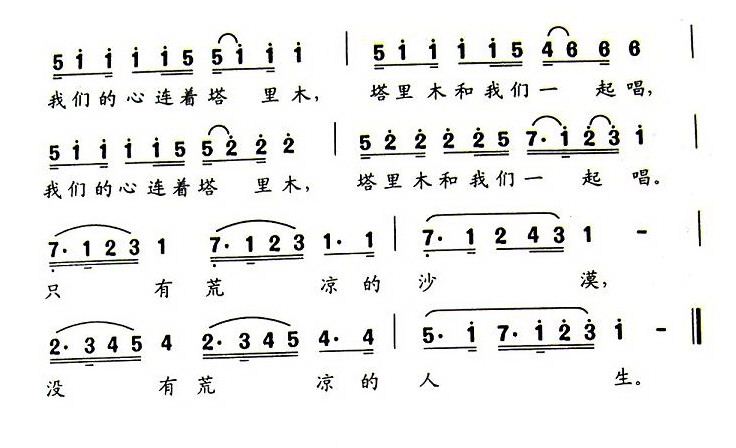 5 i i i i 5 5 i i i i | 5 i i i i 5 4 6 6 6 |
我们的心连着塔 里木, 塔里木和我们一 起唱,
5 i i i i 5 5 2̇ 2̇ 2̇ | 5 2̇ 2̇ 2̇ 2̇ 5 7· i 2̇ 3̇ i |
我们的心连着塔 里木, 塔里木和我们一 起 唱。
7̣· 1 2 3 1 7̣· 1 2 3 1· 1 | 7̣· 1 2 4 3 1 - |
只 有 荒 凉 的 沙 漠,
2· 3 4 5 4 2· 3 4 5 4· 4 | 5· i 7· i 2̇ 3̇ i - ‖
没 有 荒 凉 的 人 生。